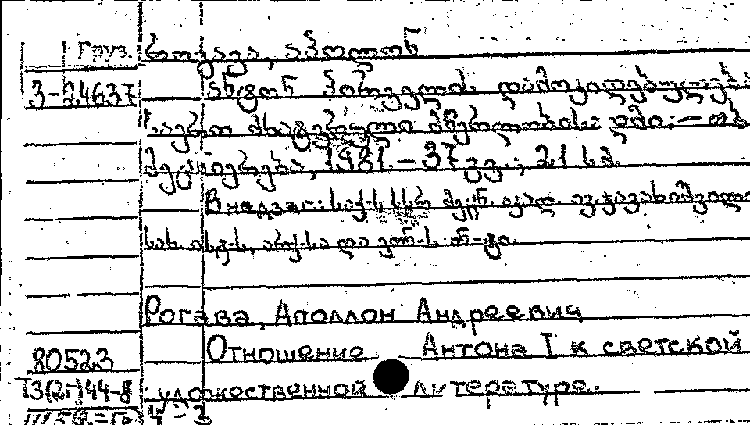 Груз. როგავა, აპოლონ
3-24637 ანტონ პირველის დამოკიდებულება
საერო მხატვრული მწერლობისადმი. — თბ.
მეცნიერება, 1981. — 37 გვ.; 21 სმ.
В надзаг.: საქ. სსრ მეცნ. აკად. ივ. ჯავახიშვილის
სახ. ისტ-ს, არქ-სა და ეთნ-ს ინ-ტი.
Рогава, Аполлон Андреевич
80523 Отношение Антона I к светской
художественной литературе.